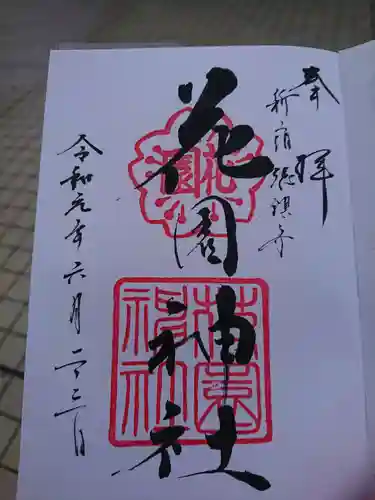 奉拝
新宿総鎮守
花園神社
花園
花園神社
令和元年六月二十三日